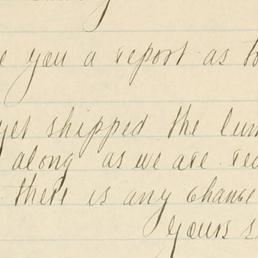 you a report as to
yet shipped the lum
along as we are rea
there is any change
Yours s